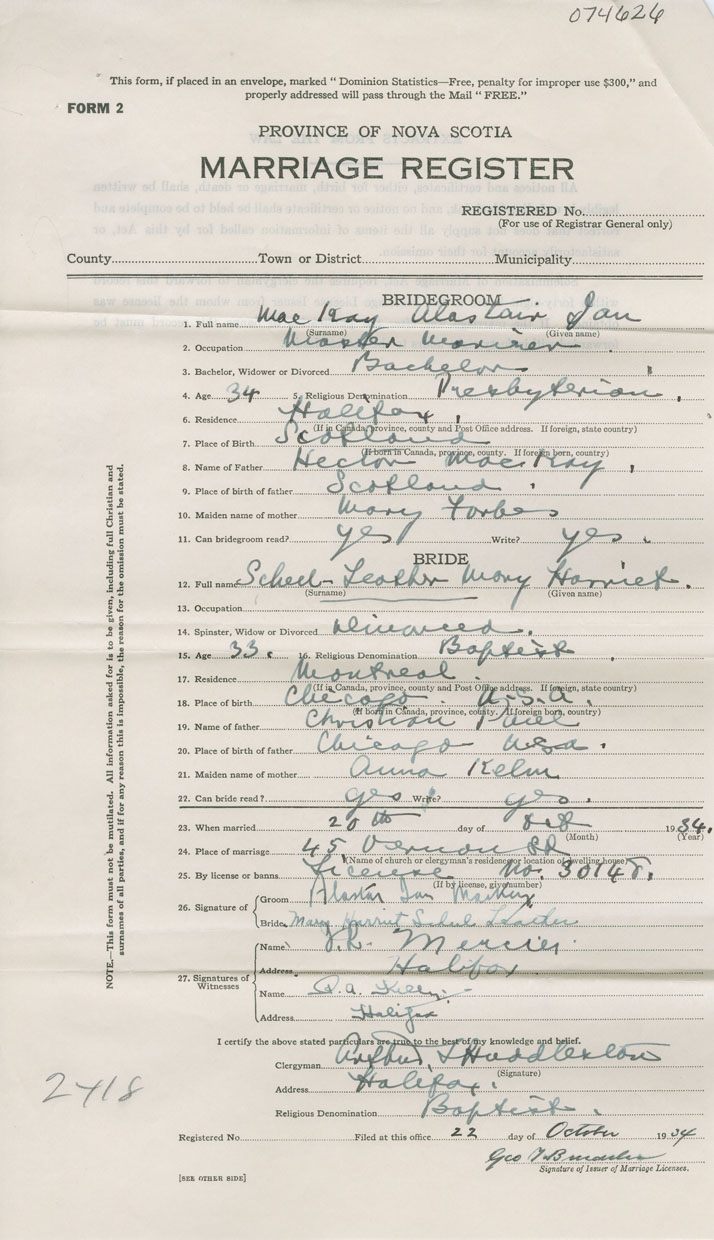 074626
This form, if placed in an envelope, marked " Dominion Statistics—Free, penalty for improper use $300," and
properly addressed will pass through the Mail " FREE."
FORM 2
PROVINCE OF NOVA SCOTIA
MARRIAGE REGISTER
REGISTERED No.
(For use of Registrar General only)
County Town or District Municipality
BRIDEGROOM
1. Full name Mac Kay Alastair Ian
(Surname) (Given name)
2. Occupation Master Mariner
3. Bachelor, Widower or Divorced Bachelor
4. Age 34 5. Religious Denomination Presbyterian
6. Residence Halifax
(If in Canada, province, county and Post Office address. If foreign, state country)
7. Place of Birth Scotland
(If born in Canada, province, county. If foreign born, country)
8. Name of Father Hector MacKay
9. Place of birth of father Scotland
10. Maiden name of mother Mary Forbes
11. Can bridegroom read? yes Write? yes
BRIDE
12. Full name Scheel-Leather Mary Harriet
(Surname) (Given name)
13. Occupation
14. Spinster, Widow or Divorced Divorced
15. Age 33 16. Religious Denomination Baptist
17. Residence Montreal
(If in Canada, province, county and Post Office address. If foreign, state country)
18. Place of birth Chicago U.S.A.
(If born in Canada, province, county. If foreign born, country)
19. Name of father Christian
20. Place of birth of father Chicago USA
21. Maiden name of mother Anna Kelm
22. Can bride read? yes Write? yes
23. When married 20th day of Oct 1934
(Month) (Year)
24. Place of marriage 45 Vernon St
(Name of church or clergyman's residence or location of dwelling house)
25. By license or banns License No. 30148
(If by license, give number)
26. Signature of Groom Alastair Ian MacKay
Bride Mary Harriet Scheel Leather
27. Signatures of Witnesses
Name Mercier
Address Halifax
Name
Address Halifax
I certify the above stated particulars are true to the best of my knowledge and belief.
Clergyman Arthur L Huddleston
(Signature)
Address Halifax
Religious Denomination Baptist
Registered No. Filed at this office 22 day of October 1934
Geo
Signature of Issuer of Marriage Licenses.
[SEE OTHER SIDE]
NOTE.—This form must not be mutilated. All information asked for is to be given, including full Christian and
surnames of all parties, and if for any reason this is impossible, the reason for the omission must be stated.
2418